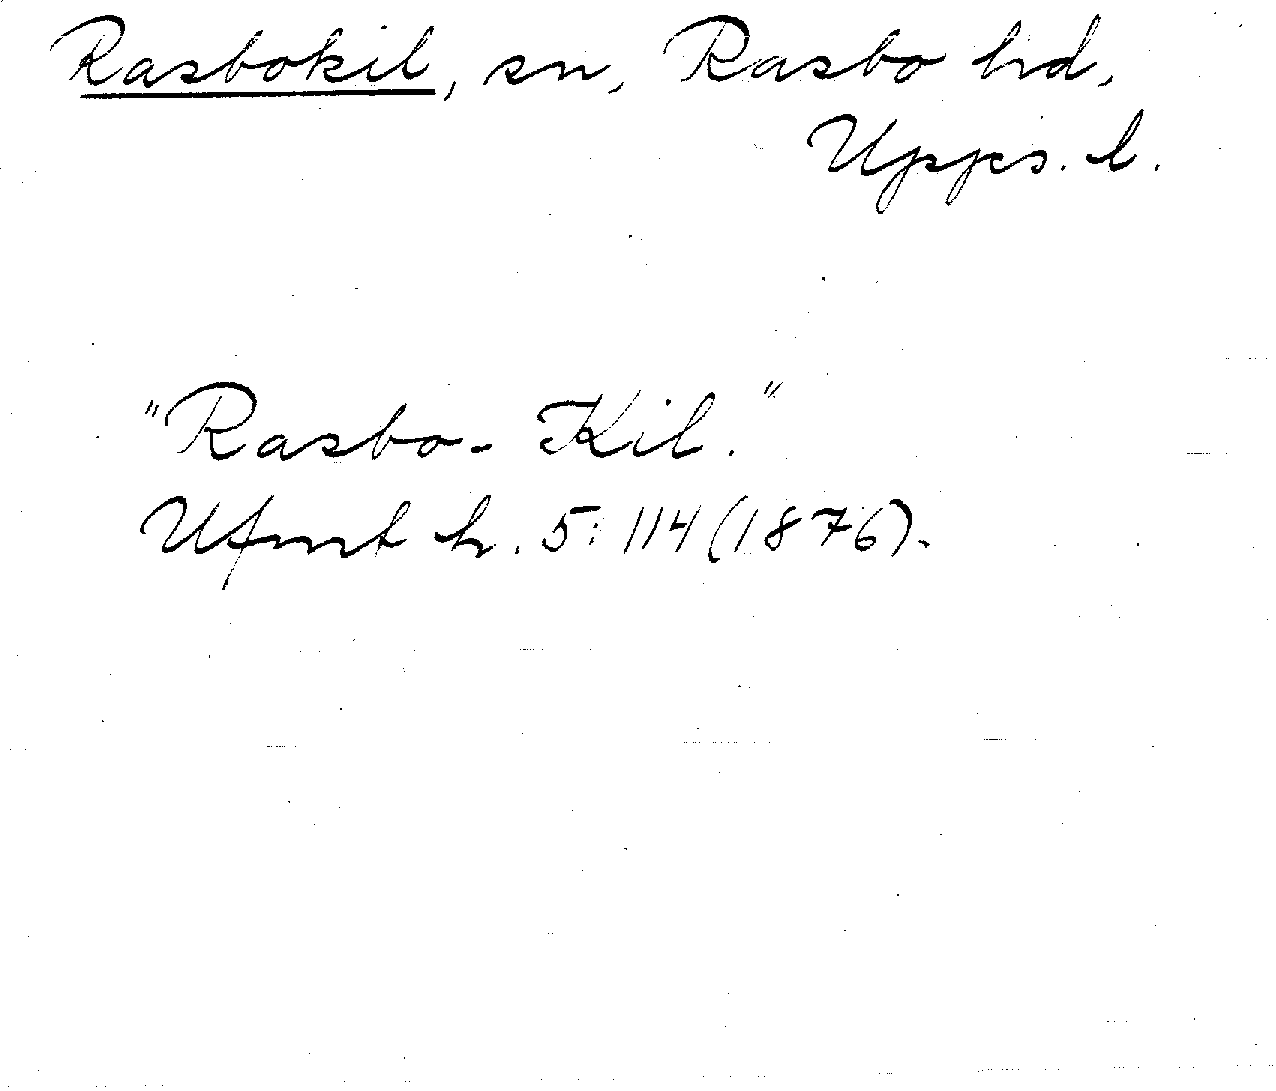 Rasbokil, sn, Rasbo hd,
Upps. l.
"Rasbo-Kil."
Ufmt h. 5: 114 (1876).